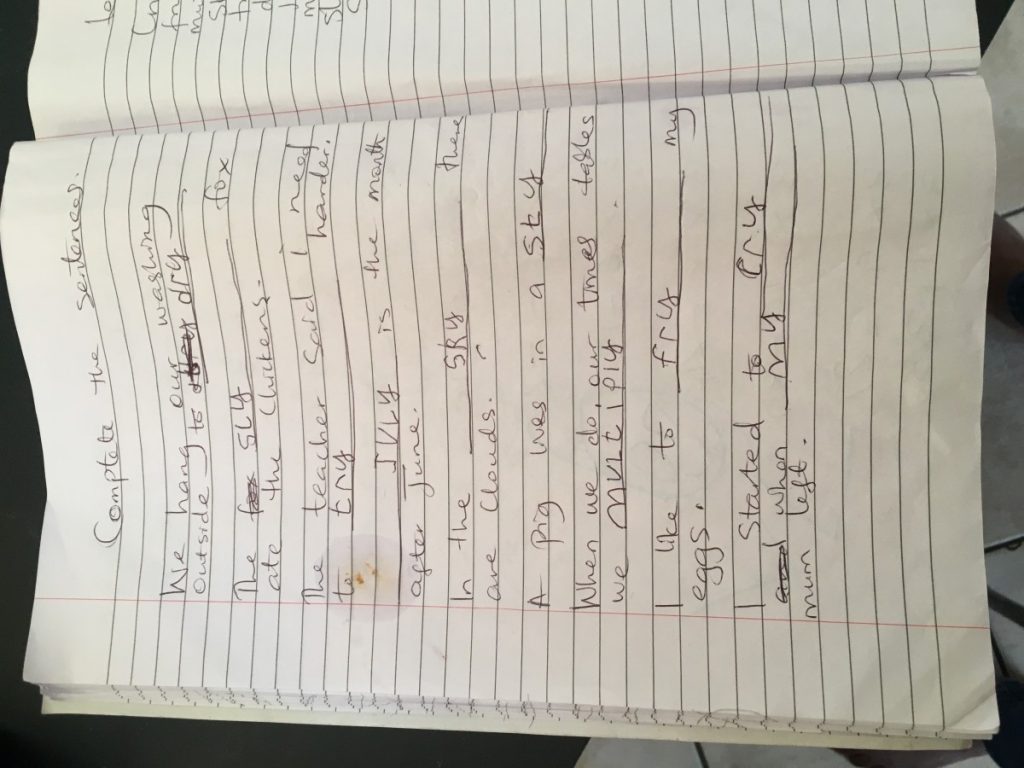 Complete the sentences.
We hang our washing
outside to dry dry.
The fox sly fox
ate the chickens.
The teacher said I need
to try harder.
JULY is the month
after June.
In the SKY there
are clouds.
A pig lives in a StY
When we do our times tables
we MULtiplY.
I like to frY my
eggs.
I started to CrY
and when MY
mum left.